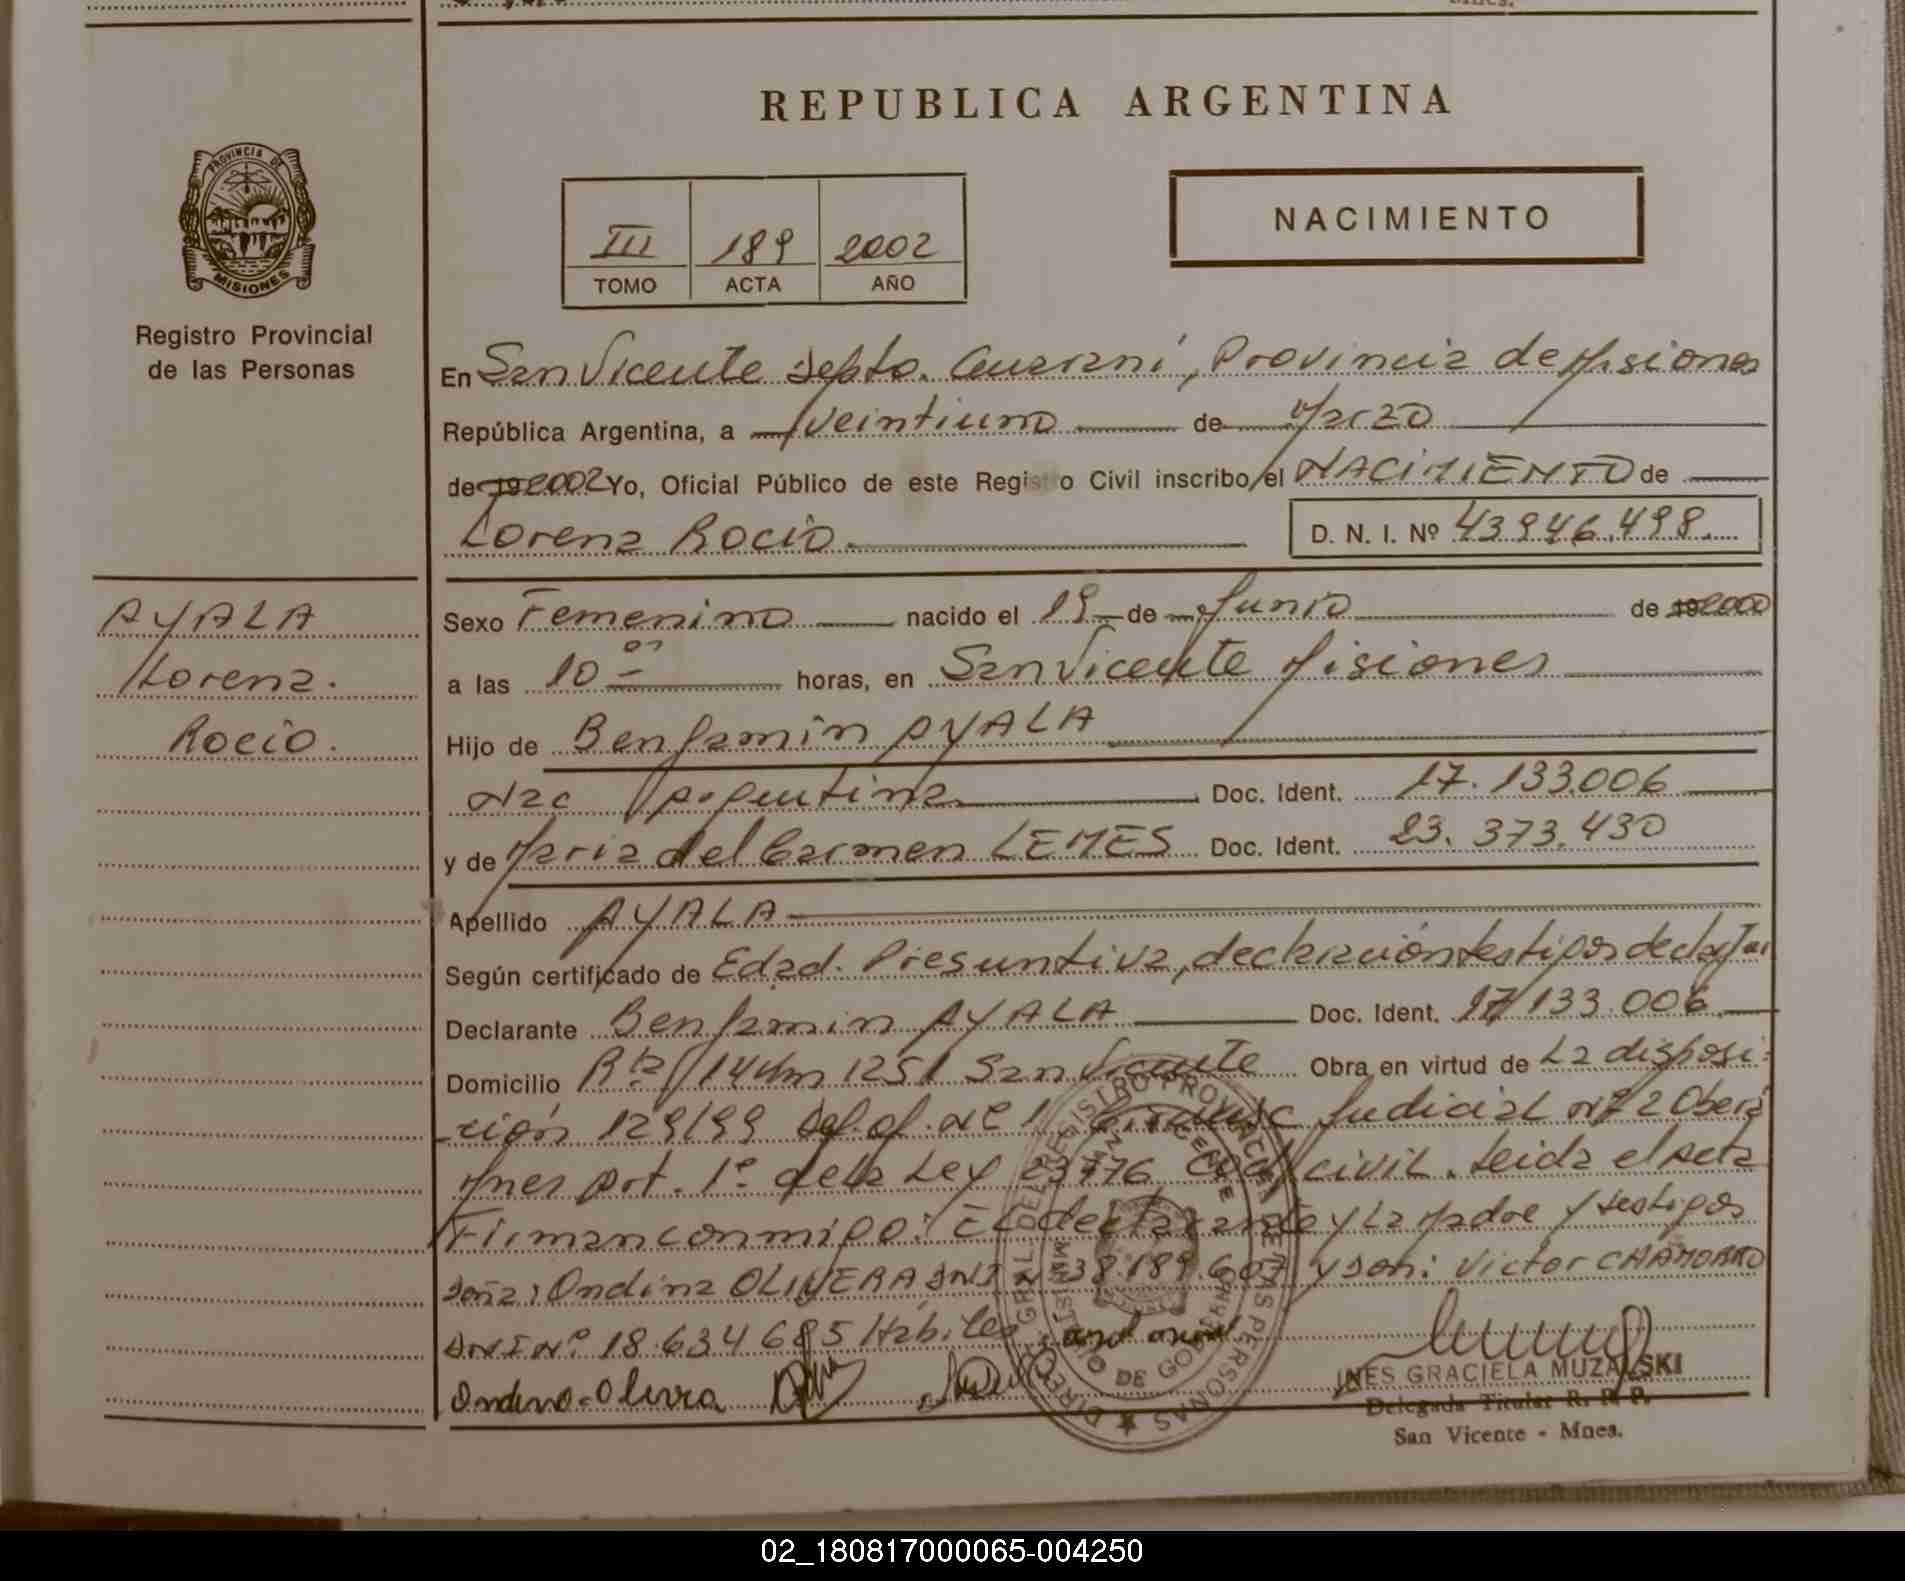 Mnes.
REPUBLICA ARGENTINA
PROVINCIA DE
MISIONES
Registro Provincial
de las Personas
III 189 2002
TOMO ACTA AÑO
NACIMIENTO
En San Vicente Depto. Guarani, Provincia de Misiones
República Argentina, a veintiuno de Marzo
de 19 2002 Yo, Oficial Público de este Registro Civil inscribo el NACIMIENTO de
Lorena Rocio D. N. I. Nº 43946.498
AYALA
Lorena.
Rocio.
Sexo Femenino nacido el 19 de Junio de 19 2000
a las 10 00 horas, en San Vicente Misiones
Hijo de Benjamin AYALA
Nac Argentina Doc. Ident. 17.133.006
y de Maria del Carmen LEMES Doc. Ident. 23.373.430
Apellido AYALA
Según certificado de Edad Presuntiva, declaración testigos de
Declarante Benjamin AYALA Doc. Ident. 17 133 006
Domicilio Rta 14 Km 1251 San Vicente Obra en virtud de La disposi
ción 129/99 Def. of. Nº 1 Judicial Nº 2 Oberá
Mnes Art. 1º de la Ley 23776 Cod civil. Leida el acta
Firman conmigo: El declarante y La Madre y testigos
Doña: Ondina OLIVERA DNI 38.189.607 y Don: Victor CHAMORRO
DNI Nº 18.634 685 Habiles
Ondina Olivra
DIRECCION GRAL DEL REGISTRO PROVINCIAL DE LAS PERSONAS
MINISTERIO DE GOBIERNO
SAN VICENTE
INES GRACIELA MUZALSKI
Delegada Titular R. P. P.
San Vicente - Mnes.
02_180817000065-004250